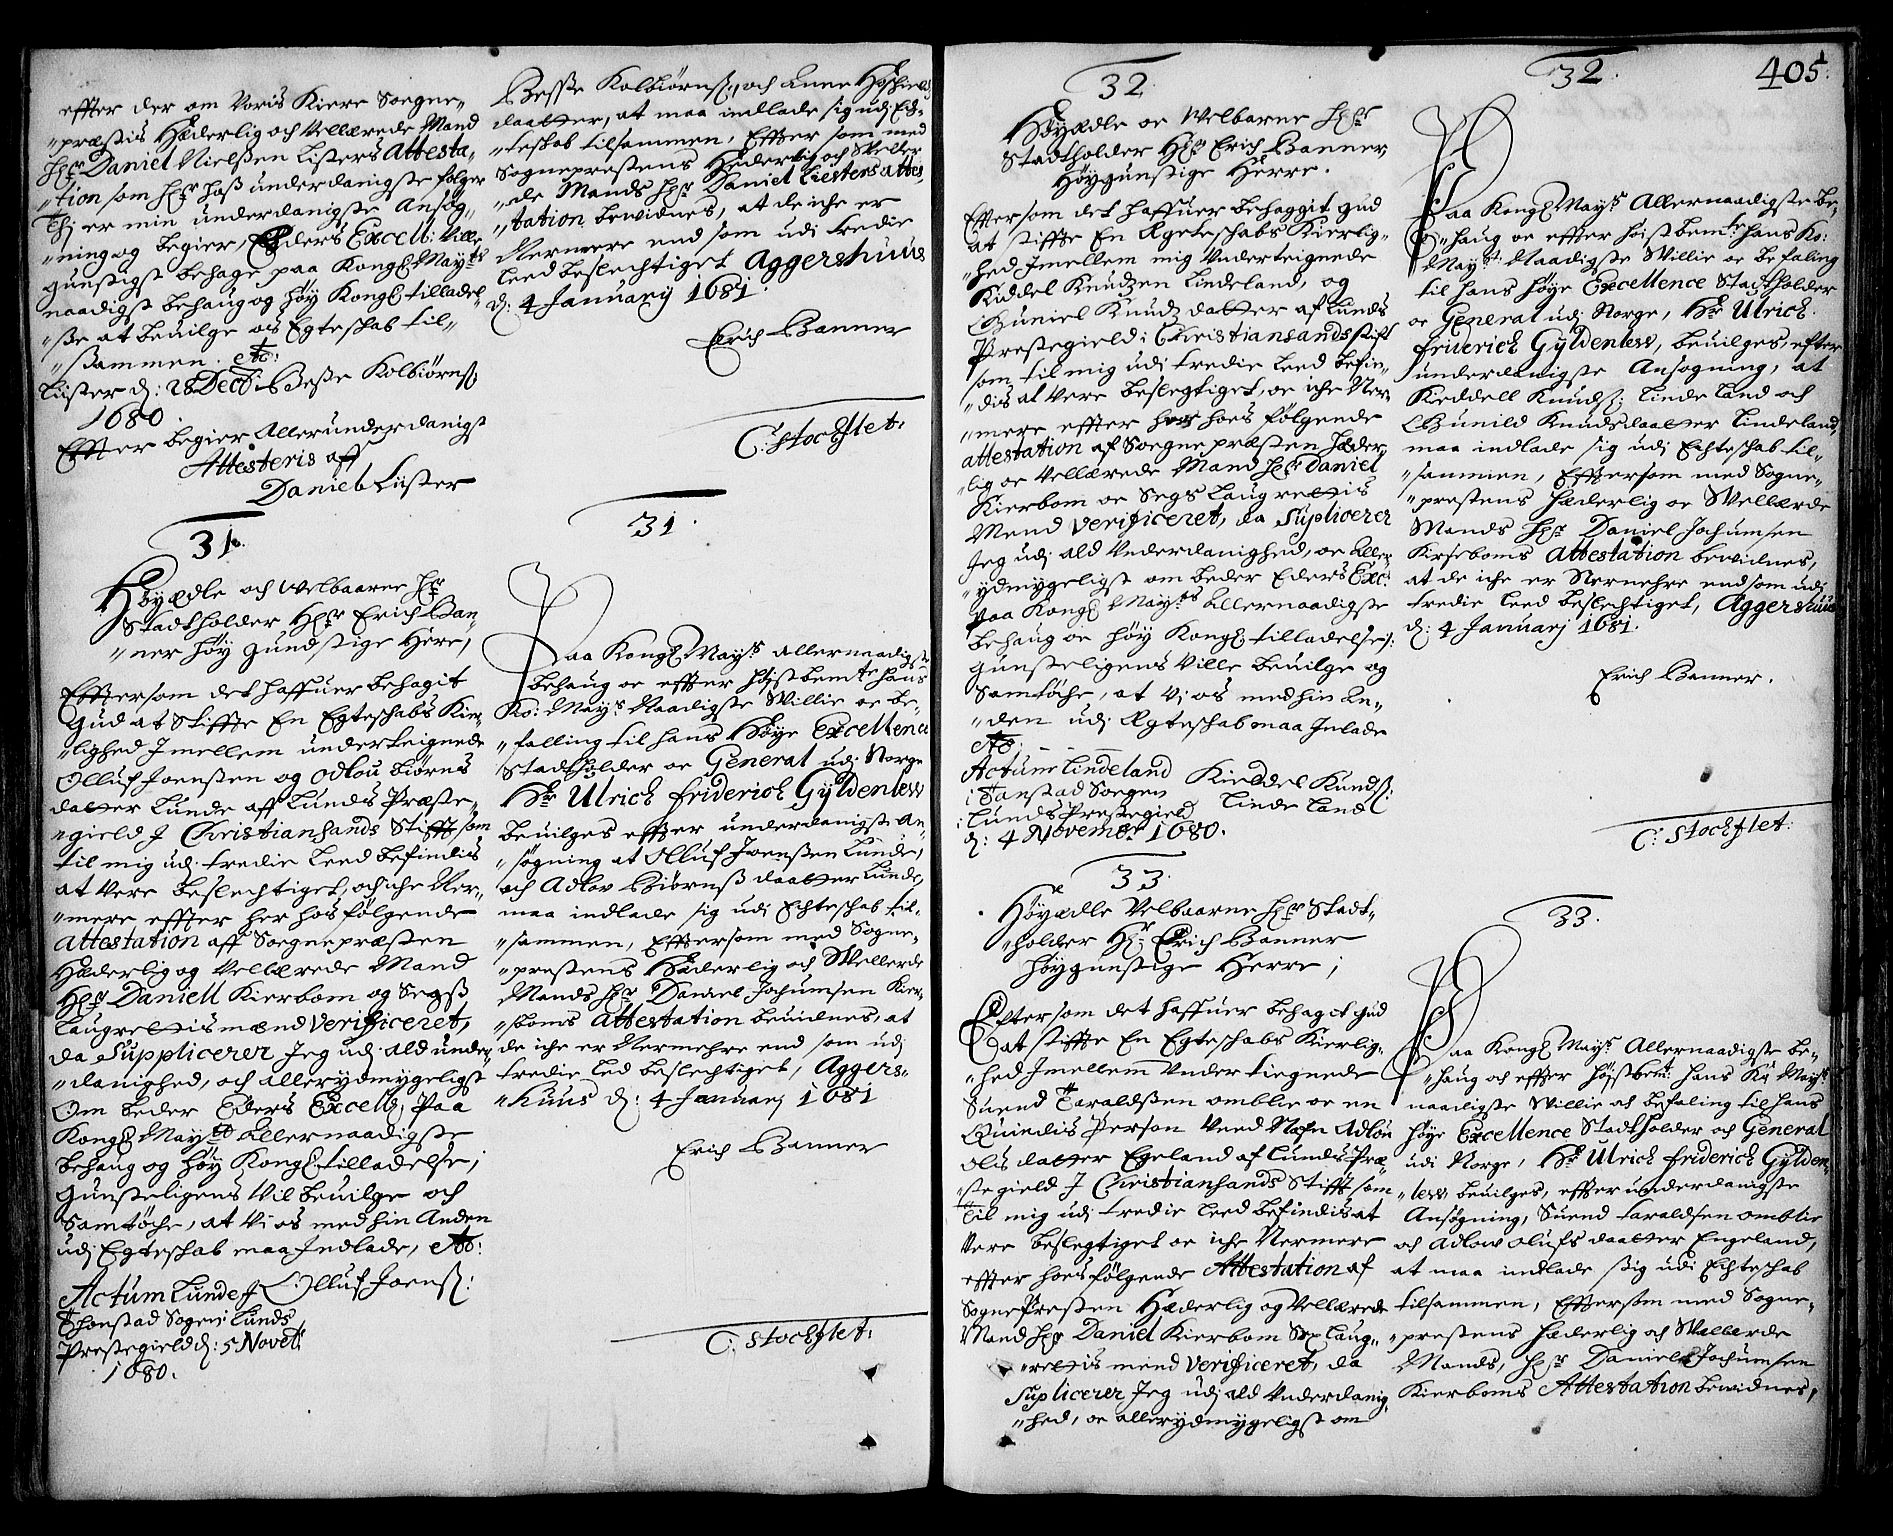 effter der om Voris Kiere Soegne-
præstis Hæderlig och Vellærede Mand
Hr Daniel Nielssen Listers Attesta-
tion som her hoss underdanigste følger
Thj er min underdanigste Ansøg-
ning og begier, Eders Excell: Ville
gunstigst behage paa Kongl Mayts
naadigst behaug og høy Kongl tilladel-
sse at beuilge os Egteschab til-
sammen. etc:
Lister d: 28 Decb: Besse Kolbiørnss
1680.
Effter begier Allerunderdanigst
Attesteris aff
Daniel Lister
31.
Høyædle och Welbaarne Hr
Stadtholder Her Erich Ban-
ner høy gundstige Herre,
Efftersom det haffuer behagit
Gud at Stiffte En Egteschabs Kier-
lighed Imellem underteignede
Olluf Joenssen og Odlou Biørns
datter Lunde aff Lunds Præste-
gield J Christiansands Stifft som
til mig udj tredie Leed befindis
at Vere beslechtiget, och iche Ner-
mere effter her hos følgende
Attestation aff Soegnepræsten
Hæderlig og Vellærede Mand
Her Daniell Kierbom og Segs
Laugrettismænd Verificeret,
da Supplicerer Jeg udj ald under-
danighed, och allerydmygeligst
Om beder Eders Excell; Paa
Kongl Mayts Allernaadigste
behaug og høy Kongl tilladelse,
Gunsteligens Vil beuilge och
Samtøche, at Vi os med hin Anden
udj Egteschab maa Indlade, etc:
Actum Lunde Olluf Joenss:
Thonstad Sogen i Lunds
Prestegield d: 5 Novet
1680.
Besse Kolbiørnss, och Anne
daatter, at maa indlade sig udj Ech-
teskab tilsammen, Effter som med
Sogneprestens Hæderlig och Vellær-
de Mands Hr Daniel Liesters attes-
tation bewidnes, at de iche er
Nermere end som udi tredie
leed beslechtiget Aggershuus
d: 4 Januarij 1681.
Erich Banner
C: Stochflet:
31.
Paa Kongl Mayts allernaadigste
behaug oc effter høistbemte hans
Ko: Mayts Naadigste Willie oc be-
falling til hans Høye Excellence
Stadtholder oc General udj Norge
Hr Ulrich Friderich Gyldenlew
beuilges effter underdanigste an-
søgning at Olluf Joenssen Lunde,
och Adlov Biørnss daatter Lunde,
maa indlade sig udj Echteschab til-
sammen, Efftersom med Sogne-
prestens Hæderlig och Wellerde
Mands Hr Daniel Jochumsen Kier-
boms Attestation beuidnes, at
de iche er Nermehre end som udj
tredie Led beslechtiget, Aggers-
huus d: 4 Januarj 1681
Erich Banner
C: Stochflet:
405.
32
Høyædle oc Welbarne Her
Stadtholder Her Erich Banner,
Høygunstige Herre.
Efftersom det haffuer behaggit Gud
at stiffte En Ægteschabs Kierlig-
hed Imellem mig Underteignede
Kiddel Knudzen Lindeland, og
Guniel Knudzdatter af Lunds
Prestegield i Christiansands stift
som til mig udi tredie Leed befin-
dis at Vere beslegtiget, oc iche Ner-
mere effter her hoes følgende
attestation af Soegnepræsten Hæder-
lig oc Vellærede Mand Her Daniel
Kierbom oc Segs Laugrettis
Mend Verificeret, da Suplicerer
Jeg udj ald Underdanighed, oc Aller-
ydmygeligst om beder Eders Exc:
paa Kongl Mayts Allernaadigste
behaug oc høy Kongl tilladelse:
Gunsteligens Ville beuilge og
Samtøche, at Vi os med hin An-
den udj Ægteschab maa Inlade
etc:
Actum Lindeland Kieddel Knudss:
i Tanstad Soegen Linde Land
i Lunds Prestegield
d: 4 November 1680.
33.
Høyædle Velbaarne Her Stadt-
holder Hr Erich Banner
Høygunstige Herre;
Eftersom det haffuer behagit Gud
at stiffte En Egteschabs Kierlig-
hed Imellem Undertiegnede
Suend Taraldssen omblie oc en
Quindis Person Ved Nafn Adlou
Olis datter Egeland af Lunds Præ-
stegield J Christiansands Stifft som
til mig udj tredie Leed befindis at
Vere beslegtiget oc iche Nermere
effter hoes følgende Attestation af
Sogne Presten Hæderlig og Vellærede
Mand Her Daniel Kierbom Sex Laug-
rettis mend Verificeret, da
Suplicerer Jeg udj ald Underdanig-
hed, oc allerydmygeligst om
32.
Paa Kongl Mayts Allernaadigste be-
haug oc effter høist bemte hans Ko:
Mayts Naadigste Willie oc befaling
til hans høye Excellence Stadtholder
oc General udj Norge, Hr Ulrich
Friderich Gyldenlew, beuilges, efter
underdanigste Ansøgning, at
Kieddell Knudss: Linde Land och
Gunild Knudsdaatter Lindeland,
maa indlade sig udj Echteschab til-
sammen, Efftersom med Sogne-
prestens Hæderlig oc Wellærde
Mands Her Daniel Jochumsen
Kirseboms Attestation bewidnes,
at de iche er Nermehre end som udj
tredie leed beslechtiget, Aggershuus
d: 4 Januarj 1681.
Erich Banner.
C: Stochflet:
33.
Paa Kongl Mayts Allernaadigste be-
haug och effter høistbemt: hans Ko Mayts
naadigste Willie och befaling til hans
høye Excellence Stadtholder och General
udi Norge, Hr Ulrich Friderich Gylden-
lew beuilges, effter underdanigste
Ansøgning, Suend Taraldsen omblie
och Adlow Olufs daatter Engeland,
at maa indlade ssig udi Echteschab
tilsammen, Efftersom med Sogne-
prestens Hæderlig och Wellærde
Mands, Her Daniel Jochumsen
Kierboms Attestation bewidnes,